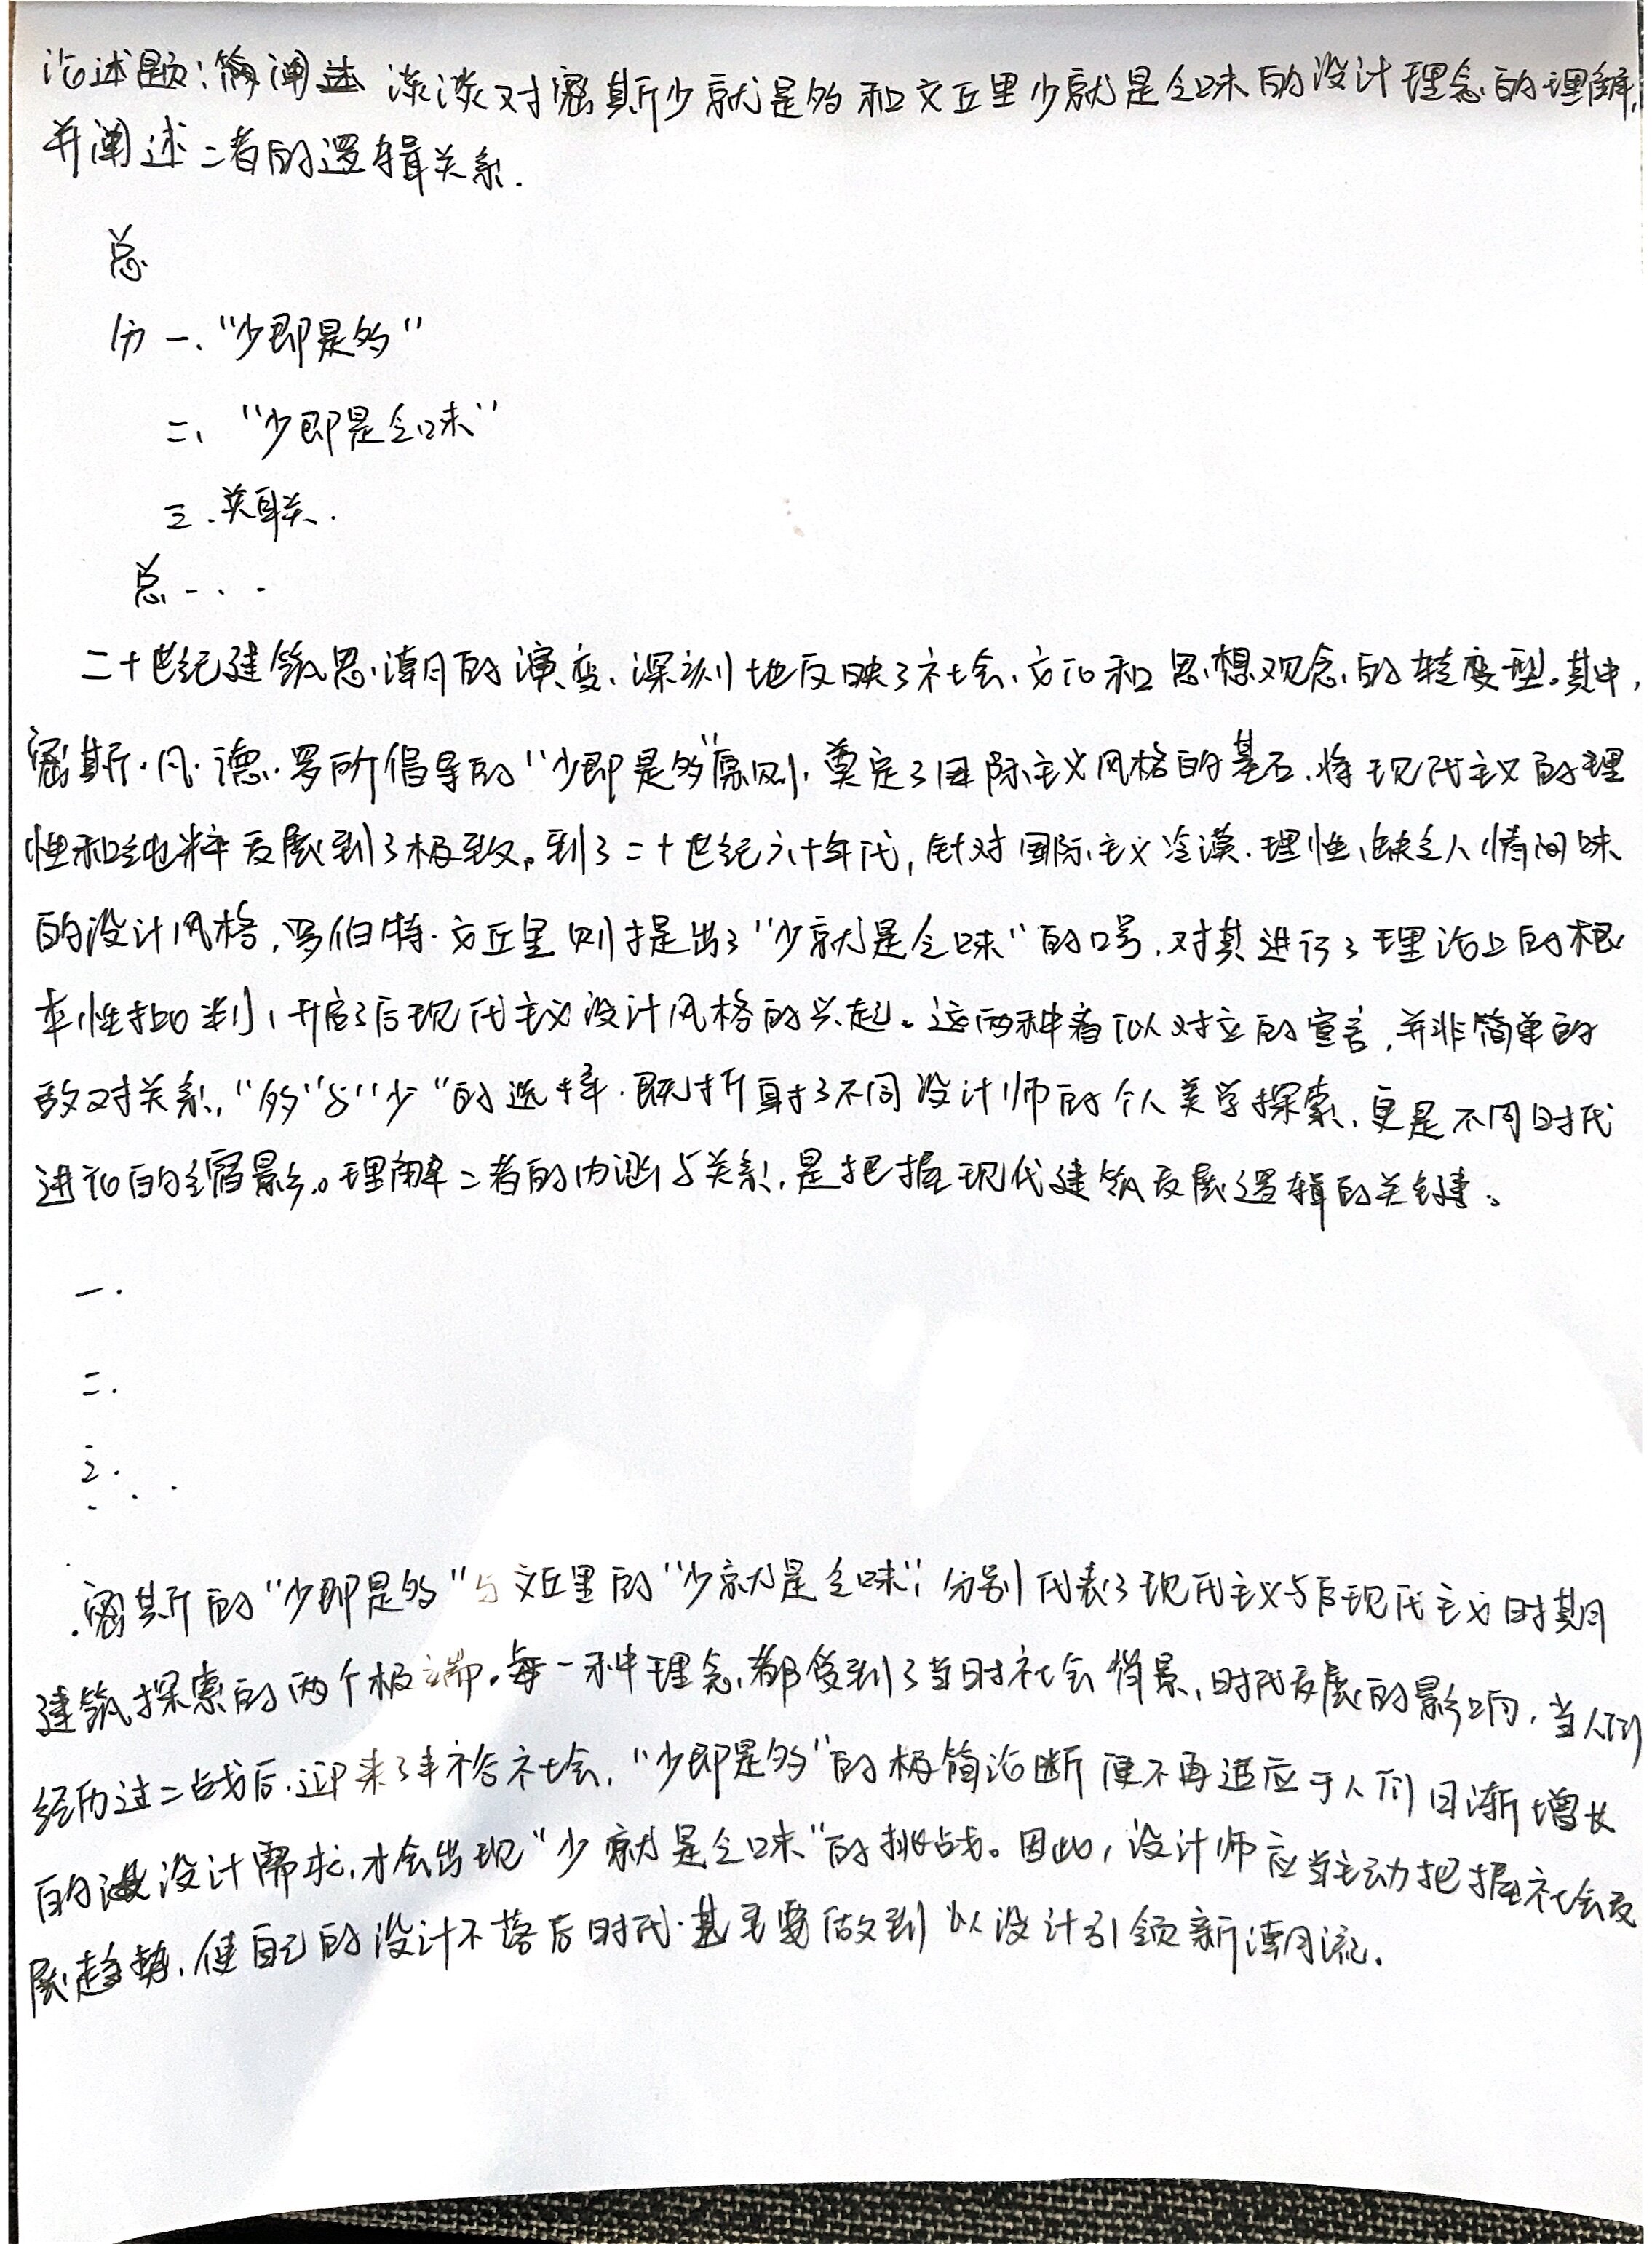 论述题：谈谈对密斯少就是多和文丘里少就是乏味的设计理念的理解,
并阐述二者的逻辑关系.
总
分 一、"少即是多"
二、"少即是乏味"
三.关联.
总...
二十世纪建筑思潮的演变、深刻地反映了社会、文化和思想观念的转型。其中,
密斯·凡·德·罗所倡导的"少即是多"原则、奠定了国际主义风格的基石、将现代主义的理
性和纯粹发展到了极致。到了二十世纪六十年代,针对国际主义冷漠、理性、缺乏人情味
的设计风格,罗伯特·文丘里则提出了"少就是乏味"的口号,对其进行了理论上的根
本性批判,开启了后现代主义设计风格的兴起。这两种看似对立的宣言,并非简单的
敌对关系,"多"与"少"的选择.既折射了不同设计师的个人美学探索,更是不同时代
进化的缩影。理解二者的内涵与关系,是把握现代建筑发展逻辑的关键。
一.
二.
三.
...
密斯的"少即是多"与文丘里的"少就是乏味",分别代表了现代主义与后现代主义时期
建筑探索的两个极端。每一种理念,都受到了当时社会背景,时代发展的影响,当人们
经历过二战后,迎来了丰裕社会,"少即是多"的极简论断便不再适应于人们日渐增长
的设计需求,才会出现"少就是乏味"的挑战。因此,设计师应当主动把握社会发
展趋势,使自己的设计不落后时代.甚至要做到以设计引领新潮流.